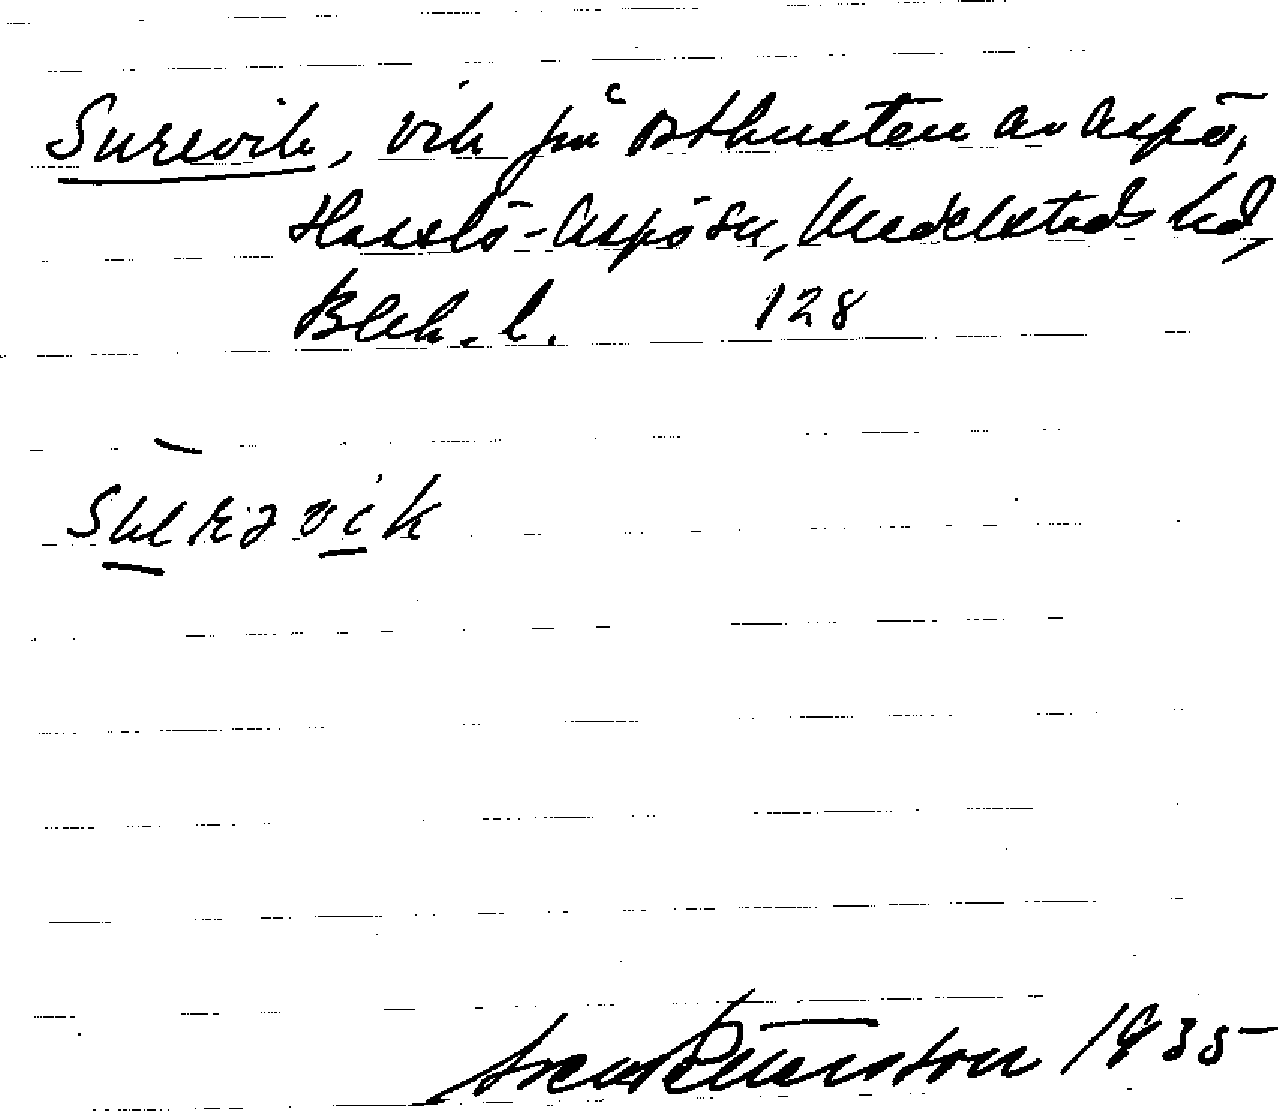 Surevik, vik på östkusten av Aspö,
Hasslö-Aspö sn, Medelstads hd,
Blek. l. 128
1935